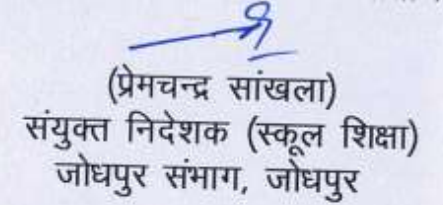 (प्रेमचन्द्र सांखला)
संयुक्त निदेशक (स्कूल शिक्षा)
जोधपुर संभाग, जोधपुर